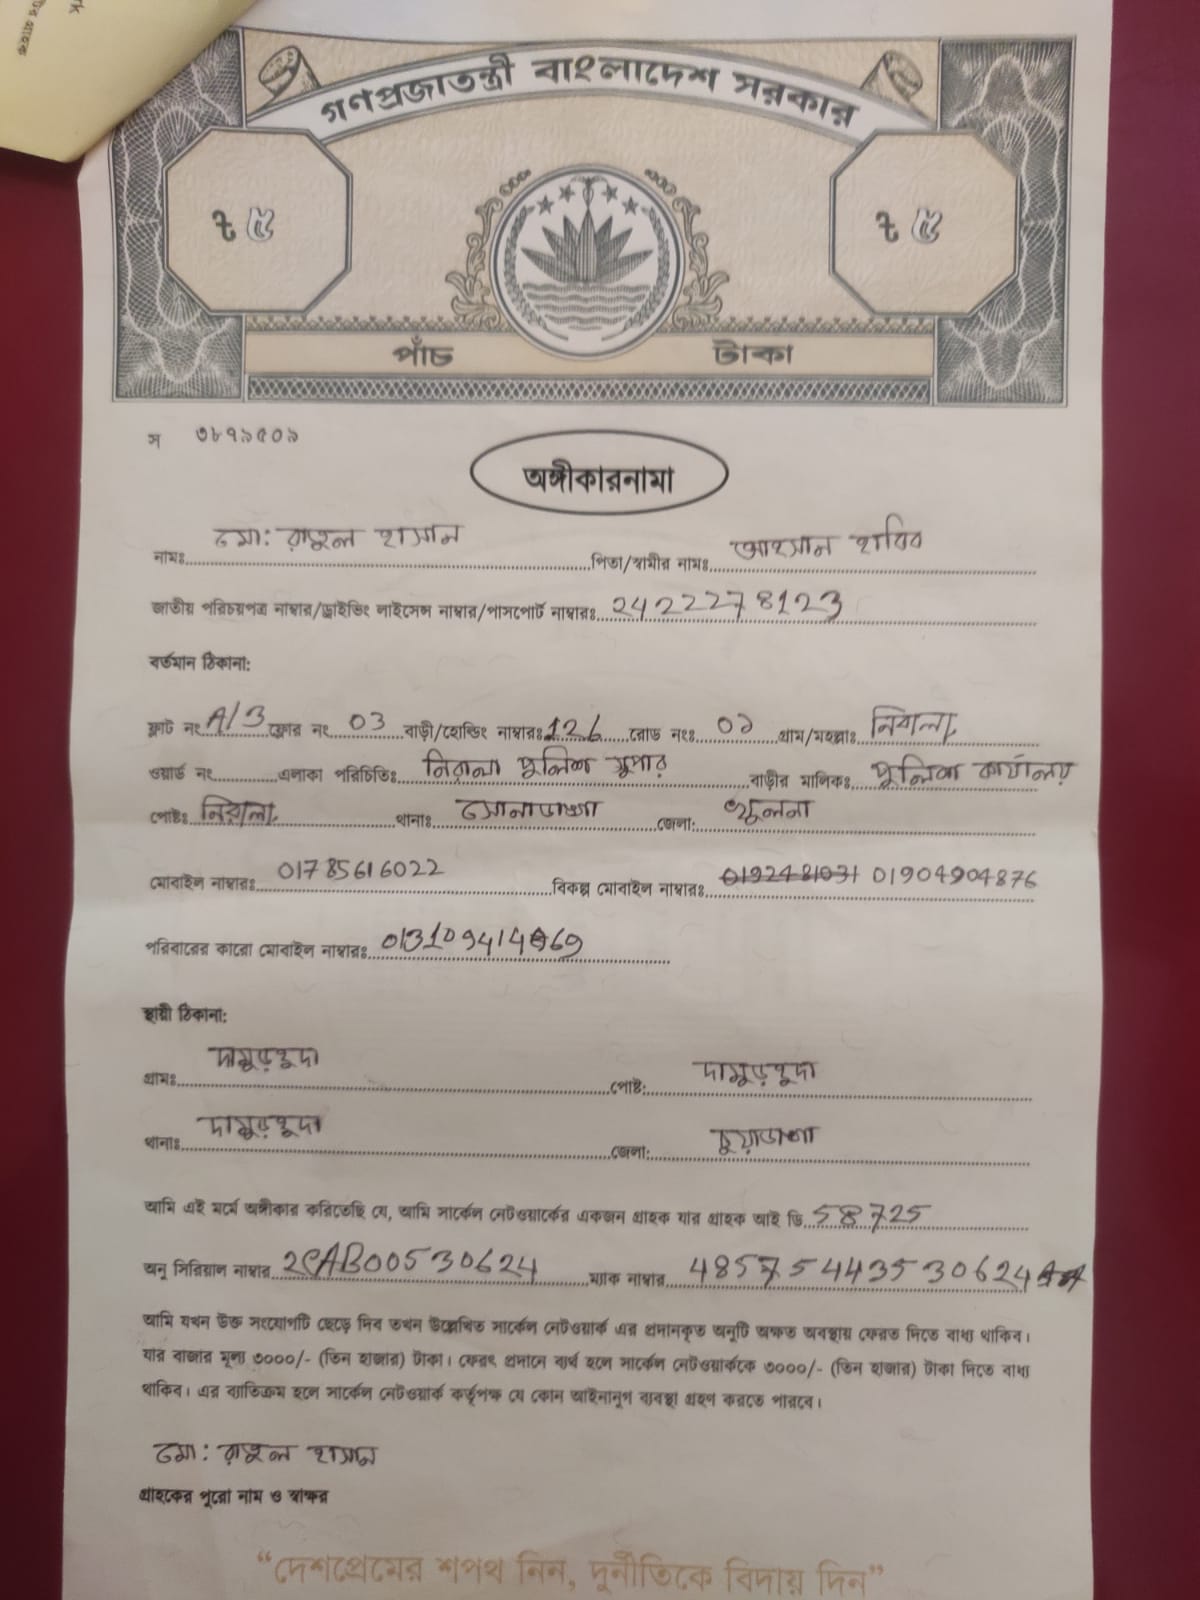 গণপ্রজাতন্ত্রী বাংলাদেশ সরকার
৳ ৫ ৳ ৫
পাঁচ টাকা
স ৩৮৭৯৫০৯
অঙ্গীকারনামা
নামঃ মো: রাতুল হাসান পিতা/স্বামীর নামঃ আহসান হাবিব
জাতীয় পরিচয়পত্র নাম্বার/ড্রাইভিং লাইসেন্স নাম্বার/পাসপোর্ট নাম্বারঃ 2422278123
বর্তমান ঠিকানা:
ফ্লাট নং A/3 ফ্লোর নং 03 বাড়ী/হোল্ডিং নাম্বারঃ 126 রোড নংঃ ০১ গ্রাম/মহল্লাঃ নিরালা
ওয়ার্ড নং এলাকা পরিচিতিঃ নিরালা পুলিশ সুপার বাড়ীর মালিকঃ পুলিশ কার্যালয়
পোষ্টঃ নিরালা থানাঃ সোনাডাঙ্গা জেলা: খুলনা
মোবাইল নাম্বারঃ 01785616022 বিকল্প মোবাইল নাম্বারঃ 01904904876
পরিবারের কারো মোবাইল নাম্বারঃ
স্থায়ী ঠিকানা:
গ্রামঃ দামুড়হুদা পোষ্ট: দামুড়হুদা
থানাঃ দামুড়হুদা জেলা: চুয়াডাঙ্গা
আমি এই মর্মে অঙ্গীকার করিতেছি যে, আমি সার্কেল নেটওয়ার্কের একজন গ্রাহক যার গ্রাহক আই ডি 58725
অনু সিরিয়াল নাম্বার 2CAB00530624 ম্যাক নাম্বার 48575443530624
আমি যখন উক্ত সংযোগটি ছেড়ে দিব তখন উল্লেখিত সার্কেল নেটওয়ার্ক এর প্রদানকৃত অনুটি অক্ষত অবস্থায় ফেরত দিতে বাধ্য থাকিব।
যার বাজার মূল্য ৩০০০/- (তিন হাজার) টাকা। ফেরৎ প্রদানে ব্যর্থ হলে সার্কেল নেটওয়ার্ককে ৩০০০/- (তিন হাজার) টাকা দিতে বাধ্য
থাকিব। এর ব্যতিক্রম হলে সার্কেল নেটওয়ার্ক কর্তৃপক্ষ যে কোন আইনানুগ ব্যবস্থা গ্রহণ করতে পারবে।
মো: রাতুল হাসান
গ্রাহকের পুরো নাম ও স্বাক্ষর
“দেশপ্রেমের শপথ নিন, দুর্নীতিকে বিদায় দিন”